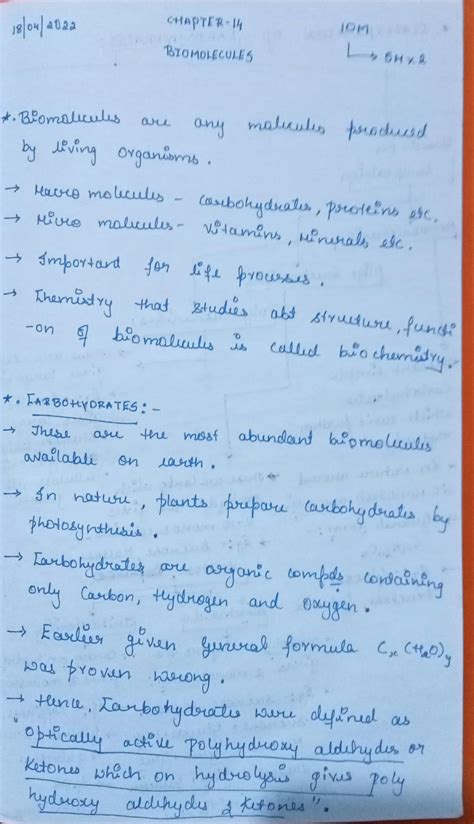 18/04/2022
CHAPTER-14
10M
↳ 5M×2
BIOMOLECULES
*. Biomolecules are any molecules produced
by living organisms.
→ Macro molecules - carbohydrates, proteins etc.
→ Micro molecules - vitamins, minerals etc.
→ Important for life processes.
→ Chemistry that studies abt structure, functi
-on of biomolecules is called biochemistry.
*. CARBOHYDRATES:-
→ These are the most abundant biomolecules
available on earth.
→ In nature, plants prepare carbohydrates by
photosynthesis.
→ Carbohydrates are organic compds containing
only Carbon, Hydrogen and Oxygen.
→ Earlier given general formula Cx(H2O)y
was proven wrong.
→ Hence, Carbohydrates were defined as
"Optically active polyhydroxy aldehydes or
Ketones which on hydrolysis gives poly
hydroxy aldehydes & Ketones".